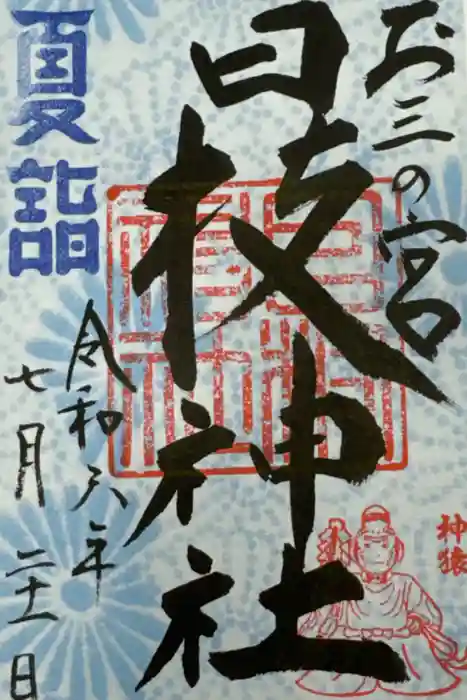 お三の宮
日枝神社
夏詣
令和六年
七月二十一日
神猿